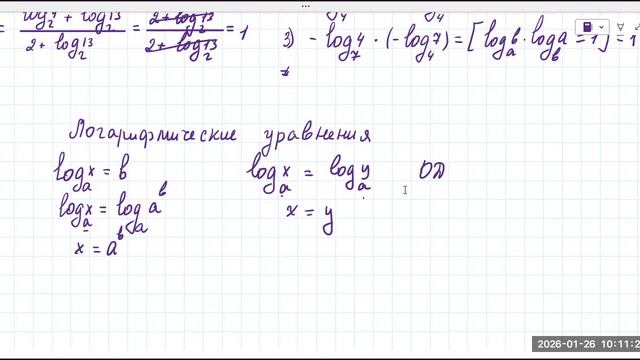 = log₂4 + log₂13 / 2 + log₂13 = 2 + log₂13 / 2 + log₂13 = 1
3) - log₇4 · (- log₄7) = [log_a b · log_b a = 1] = 1
Логарифмические уравнения
log_a x = b
log_a x = log_a a^b
x = a^b
log_a x = log_a y
x = y
ОД
2026-01-26 10:11:2